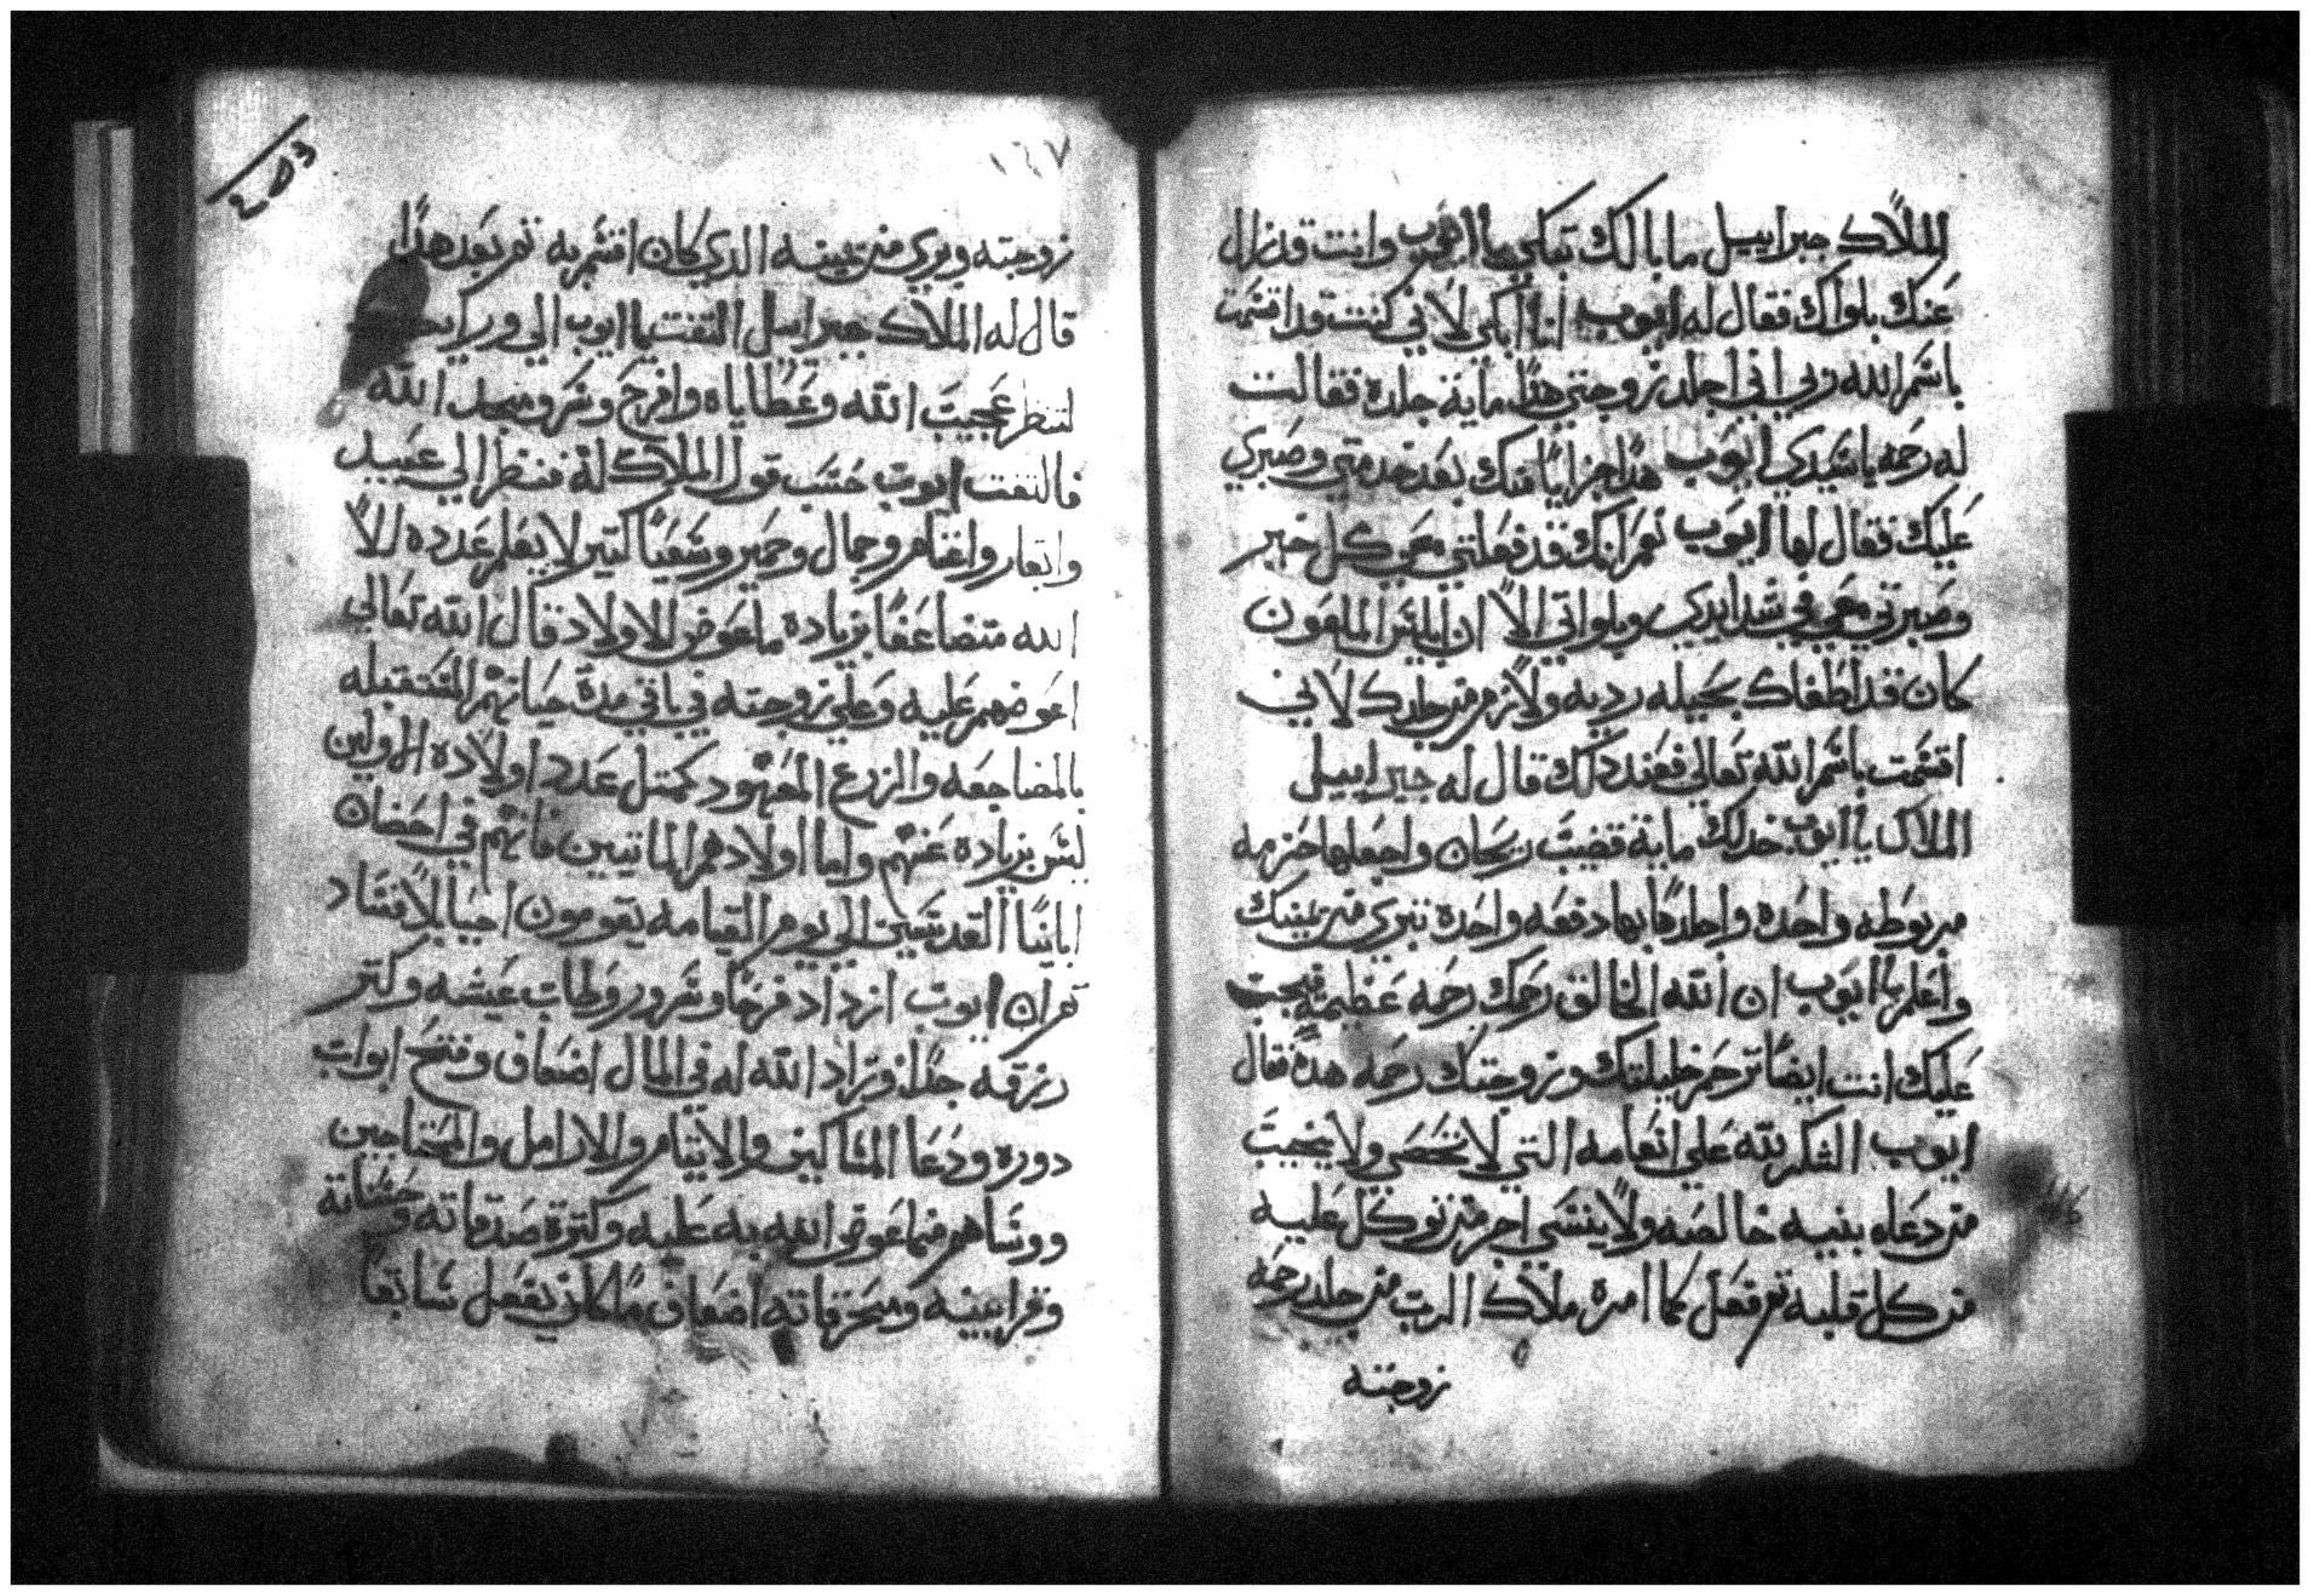 الملاك جبراييل ما بالك تبكي يا ايوب وانت قد زال
عنك بلواك فقال له ايوب انا ابكي لاني كنت قد اقسمت
باسم الله ربي اني اجلد زوجتي هذا ماية جلده فقالت
له رحمه يا سيدي ايوب هذا جزايا منك بعد خدمتي وصبري
عليك فقال لها ايوب نعم انك قد فعلتي معي كل خير
وصبرتي معي في شدايدي وبلواتي الا ان ابليس الملعون
كان قد اطغاك بحيله رديه ولازم من جلدك لاني
اقسمت باسم الله تعالي فعند دلك قال له جبراييل
الملاك يا ايوب خد لك ماية قضيب ريحان واجعلها حزمه
مربوطه واحده واجلدها بها دفعه واحدة تبري من يمينك
واعلم يا ايوب ان الله الخالق رحمك رحمه عظيمة فيجب
عليك انت ايضا ترحم خليلتك وزوجتك رحمه هده فقال
ايوب الشكر لله علي انعامه التي لا تحصي ولا يخيب
من دعاه بنيه خالصه ولا ينسي اجر من توكل عليه
من كل قلبه تم فعل كما امره ملاك الرب من جلد رحمه
زوجته
١٦٧
زوجته وبري من يمينه الدي كان اقسم به تم بعد هذا
قال له الملاك جبراييل التفت يا ايوب الي ورايك
لتنظر عجيب الله وعطاياه وافرح وسر ومجد الله
فالتفت ايوب حسب قول الملاك له فنظر الي عبيد
وابقار واغنام وجمال وحمير وسعيًا كتير لا يعلم عدده الا
الله متضاعفا بزيادة ما عوض الاولاد قال الله تعالي
اعوضهم عليه وعلي زوجته في باقي مدة حياتهم المستقبله
بالمضاجعه والزرع المعهود كمتل عدد اولاده الاولين
ليس بزياده عنهم واما اولادهم الماتيين فانهم في احضان
اباينا القديسين الي يوم القيامه يقومون احيا بلا فساد
تم ان ايوب ازداد فرحا وسرور وطاب عيشه وكتر
رزقه جدا وزاد الله له في المال اضعاف وفتح ابواب
دوره ودعا المساكين والايتام والارامل والمحتاجين
وواساهم فيما عوض الله به عليه وكترة صدقاته وحسناته
وقرابينه ومحرقاته اضعاف ما كان يفعل سابقا